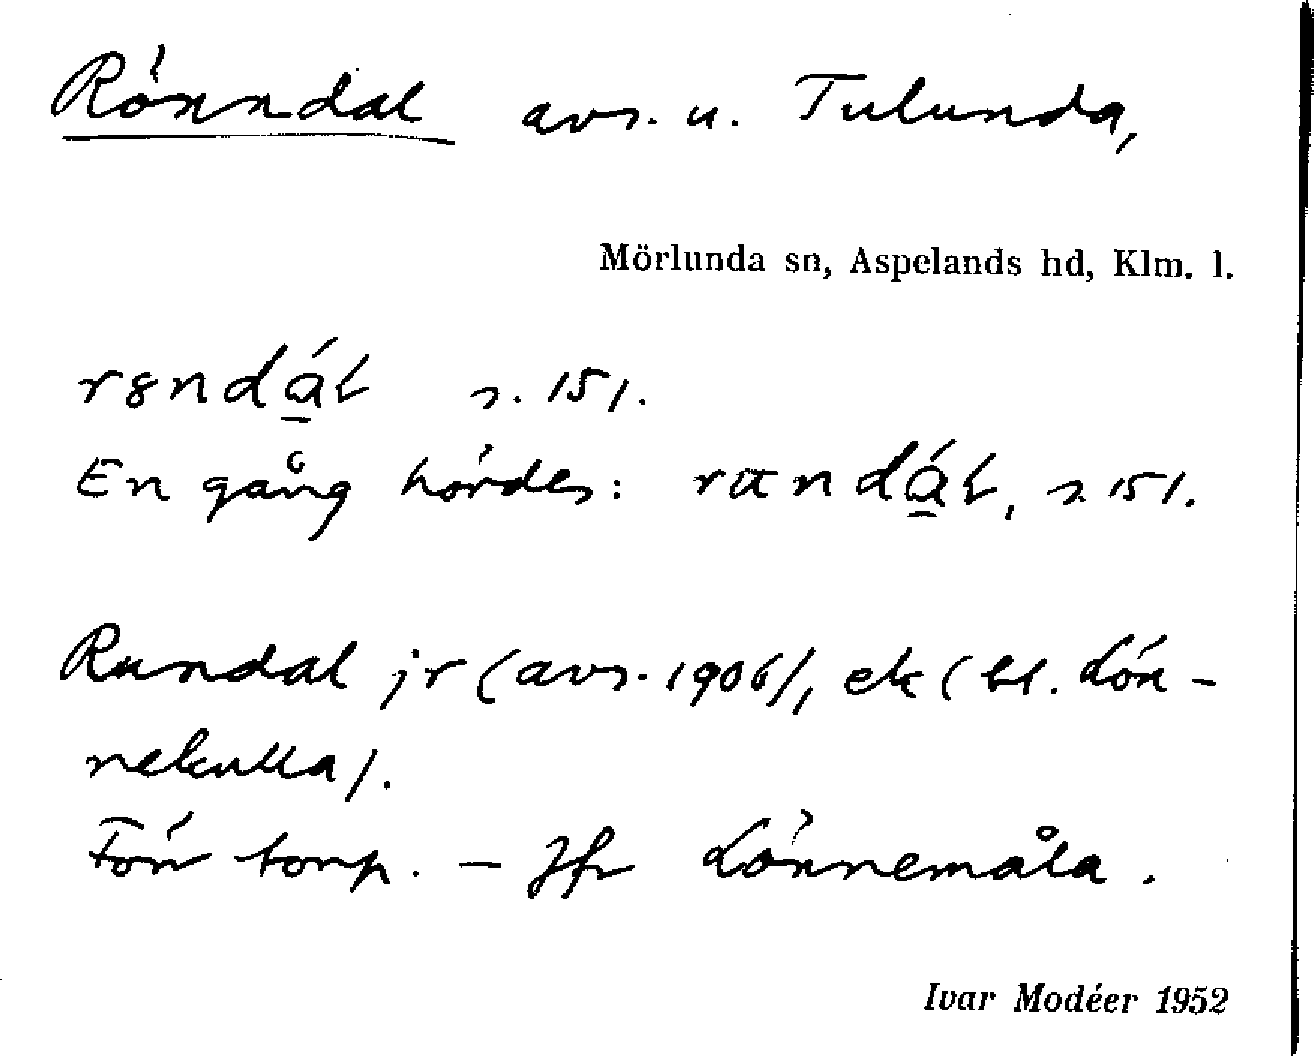 Rönndal avs. u. Tulunda,
Mörlunda sn, Aspelands hd, Klm. l.
rȣndá̲ɫ s. 151.
En gång hördes: randá̲ɫ, s. 151.
Rundal jr (avs. 1906), ek (bl. Lön-
nekulla).
Förr torp. – Jfr Lönnemåla.
Ivar Modéer 1952